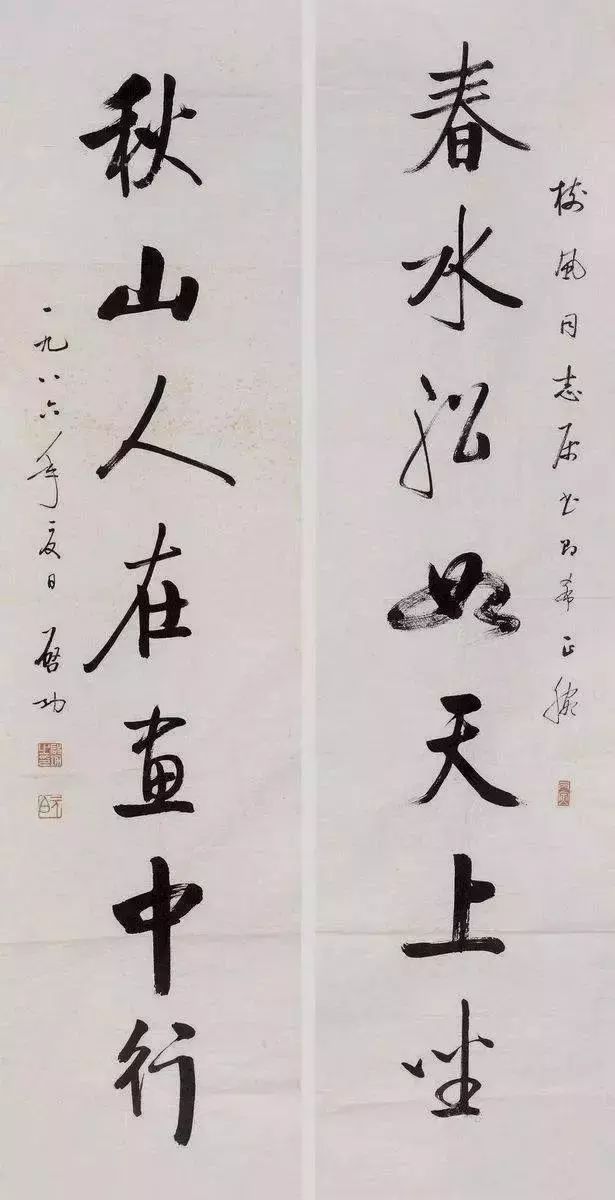 樹風同志属书即希正腕
春水船如天上坐
秋山人在画中行
一九八六年夏日 启功
元白